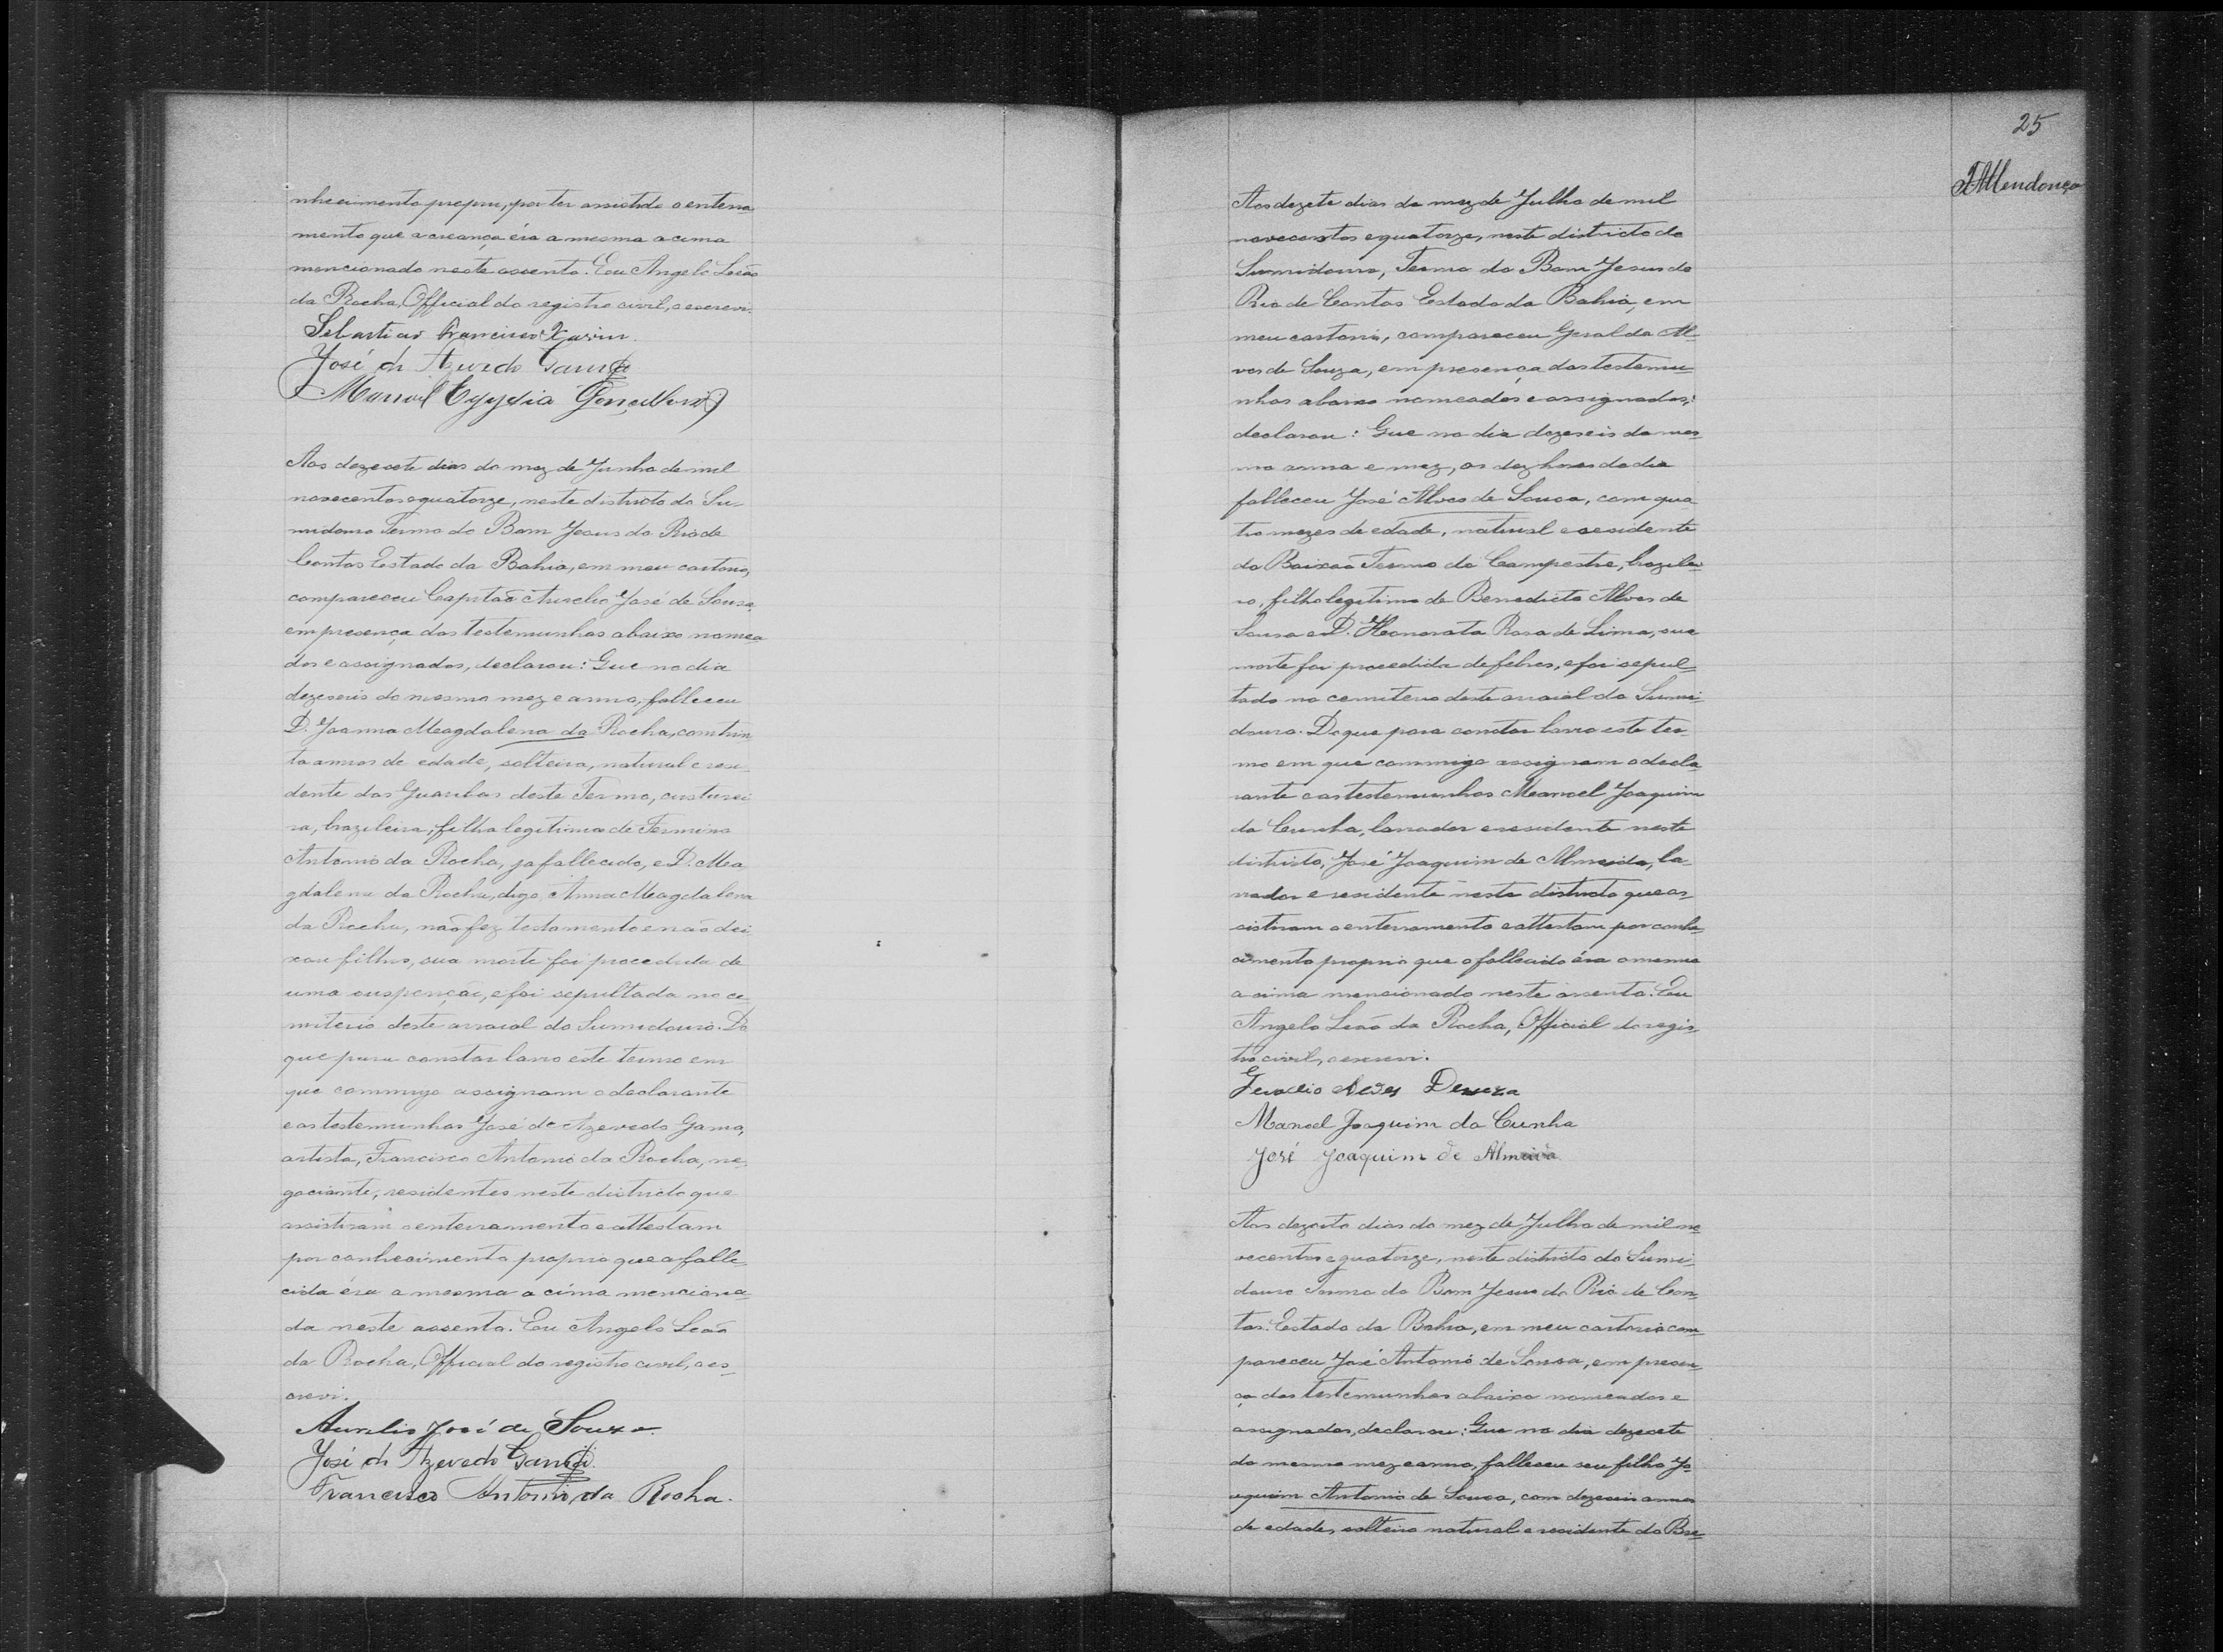 nhecimento propru, por ter assistido o enterra
mento que a creança éra a mesma acima
mencionado neste assento. Eu Angelo Leão
da Rocha, Official do registro civil, o escrevi.
Sebastião Francisco Xavier.
José de Azevedo Gama
Manoel Egydia Gonçalves
Aos dezesete dias do mez de Junho de mil
novecentos e quatorze, neste districto do Su-
midouro Termo do Bom Jesus do Rio de
Contas Estado da Bahia, em meu cartorio,
compareceu Capitaõ Aurelio José de Sousa,
em presença das testemunhas abaixo nomea
dos e assignados, declarou: Que no dia
dezeseis do mesmo mez e anno, falleceu
D. Joanna Magdalena da Rocha, com trin
ta annos de edade, solteira, natural e resi-
dente das Guaribas deste Termo, custurei
ra, brazileira, filha legitima de Firmino
Antonio da Rocha, ja fallecido, e D. Ma
gdalena da Rocha, digo, Anna Magdalena
da Rocha, não fez testamento e não dei
xou filhos, sua morte foi procedida de
uma suspenção, e foi sepultada no ce-
miterio deste arraial do Sumidouro. Do
que para constar lavro este termo em
que commigo assignam o declarante
e as testemunhas José de Azevedo Gama,
artista, Francisco Antonio da Rocha, ne-
gociante, residentes neste districto que
assistiram o enterramento e attestam
por conhecimento proprio que a falle-
cida éra a mesma a cima menciona-
da neste assento. Eu Angelo Leão
da Rocha, Official do registro civil, o es-
crevi.
Aurelio José de Souza
José de Azevedo Gama
Francisco Antonio da Rocha.
25
Mendonça
Aos dezete dias do mez de Julho de mil
novecentos e quatorze, neste districto do
Sumidouro, Termo do Bom Jesus do
Rio de Contas Estado da Bahia, em
meu cartorio, compareceu Geraldo Al-
ves de Souza, em presença das testemu-
nhas abaixo nomeados e assignados,
declarou: Que no dia dezeseis do mes-
mo anno e mez, as dez horas do dia
falleceu José Alves de Sousa, com qua
tro mezes de edade, natural e residente
do Baixaõ Termo do Campestre, brazilei
ro, filho legitimo de Benedicto Alves de
Sousa e D. Honorata Rosa de Lima, sua
morte foi procedida de febres, e foi sepul-
tado no cemiterio deste arraial do Sumi-
douro. Do que para constar lavro este ter-
mo em que commigo assignam o decla
rante e as testemunhas Manoel Joaquim
da Cunha, lavrador e residente neste
districto, José Joaquim de Almeida, la-
vrador e residente neste districto que as-
sistiram o enterramento e attestam por conhe-
cimento proprio que o fallecido éra o mesmo
a cima mencionado neste assento. Eu
Angelo Leão da Rocha, Official do regis-
tro civil, o escrevi.
Alves Desouza
Manoel Joaquim da Cunha
José Joaquim de Almeida
Aos dezoito dias do mez de Julho de mil no
vecentos e quatorze, neste districto do Sumi-
douro Termo do Bom Jesus do Rio de Con-
tas. Estado da Bahia, em meu cartorio com-
pareceu José Antonio de Sousa, em presen-
ça das testemunhas abaixo nomeados e
assignados, declarou: Que no dia dezesete
do mesmo mez e anno, falleceu seu filho Jo-
aquim Antonio de Sousa, com dezeseis annos
de edade, solteiro natural e residente do Bre-